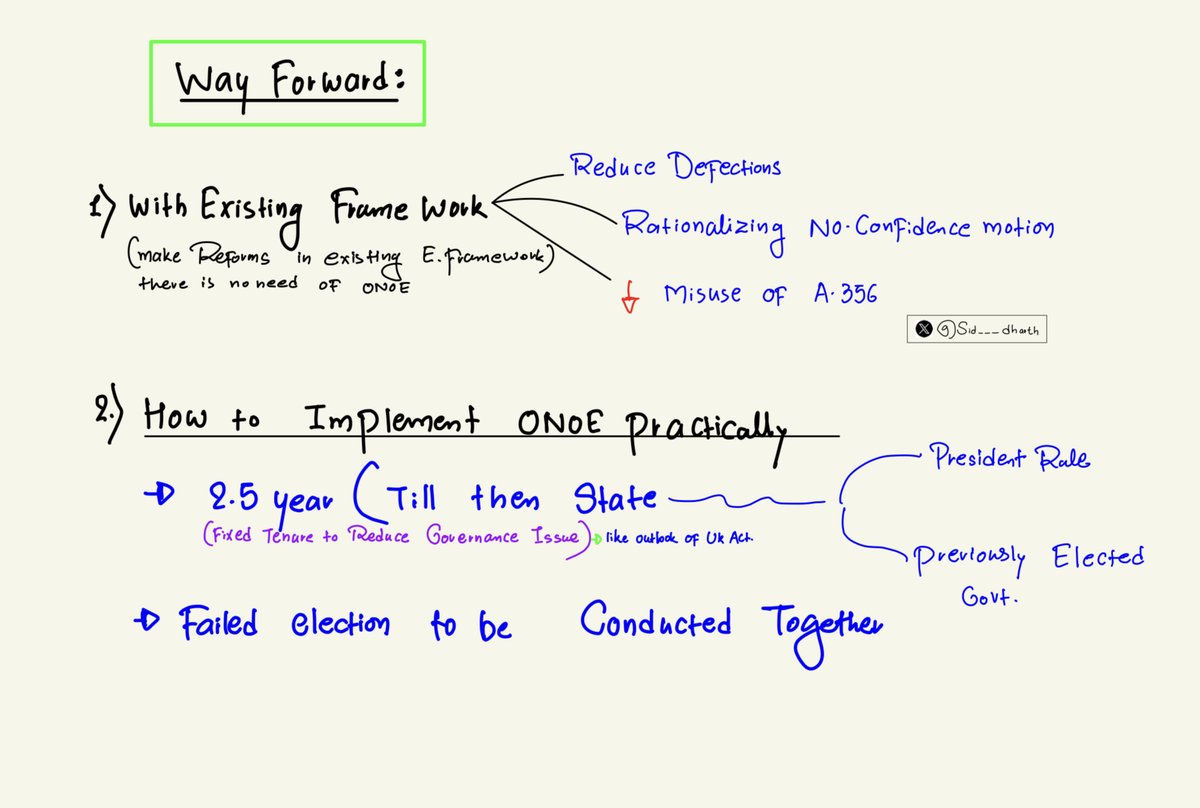 Way Forward:
1) With Existing Frame Work
(make Reforms in existing E.framework)
there is no need of ONOE
Reduce Defections
Rationalizing No-Confidence motion
↓ Misuse of A.356
X @Sid___dharth
2.) How to Implement ONOE Practically
→ 2.5 year (Till then State
(Fixed Tenure to Reduce Governance Issue) → like outlook of UK Act.
President Rule
Previously Elected
Govt.
→ Failed election to be Conducted Together